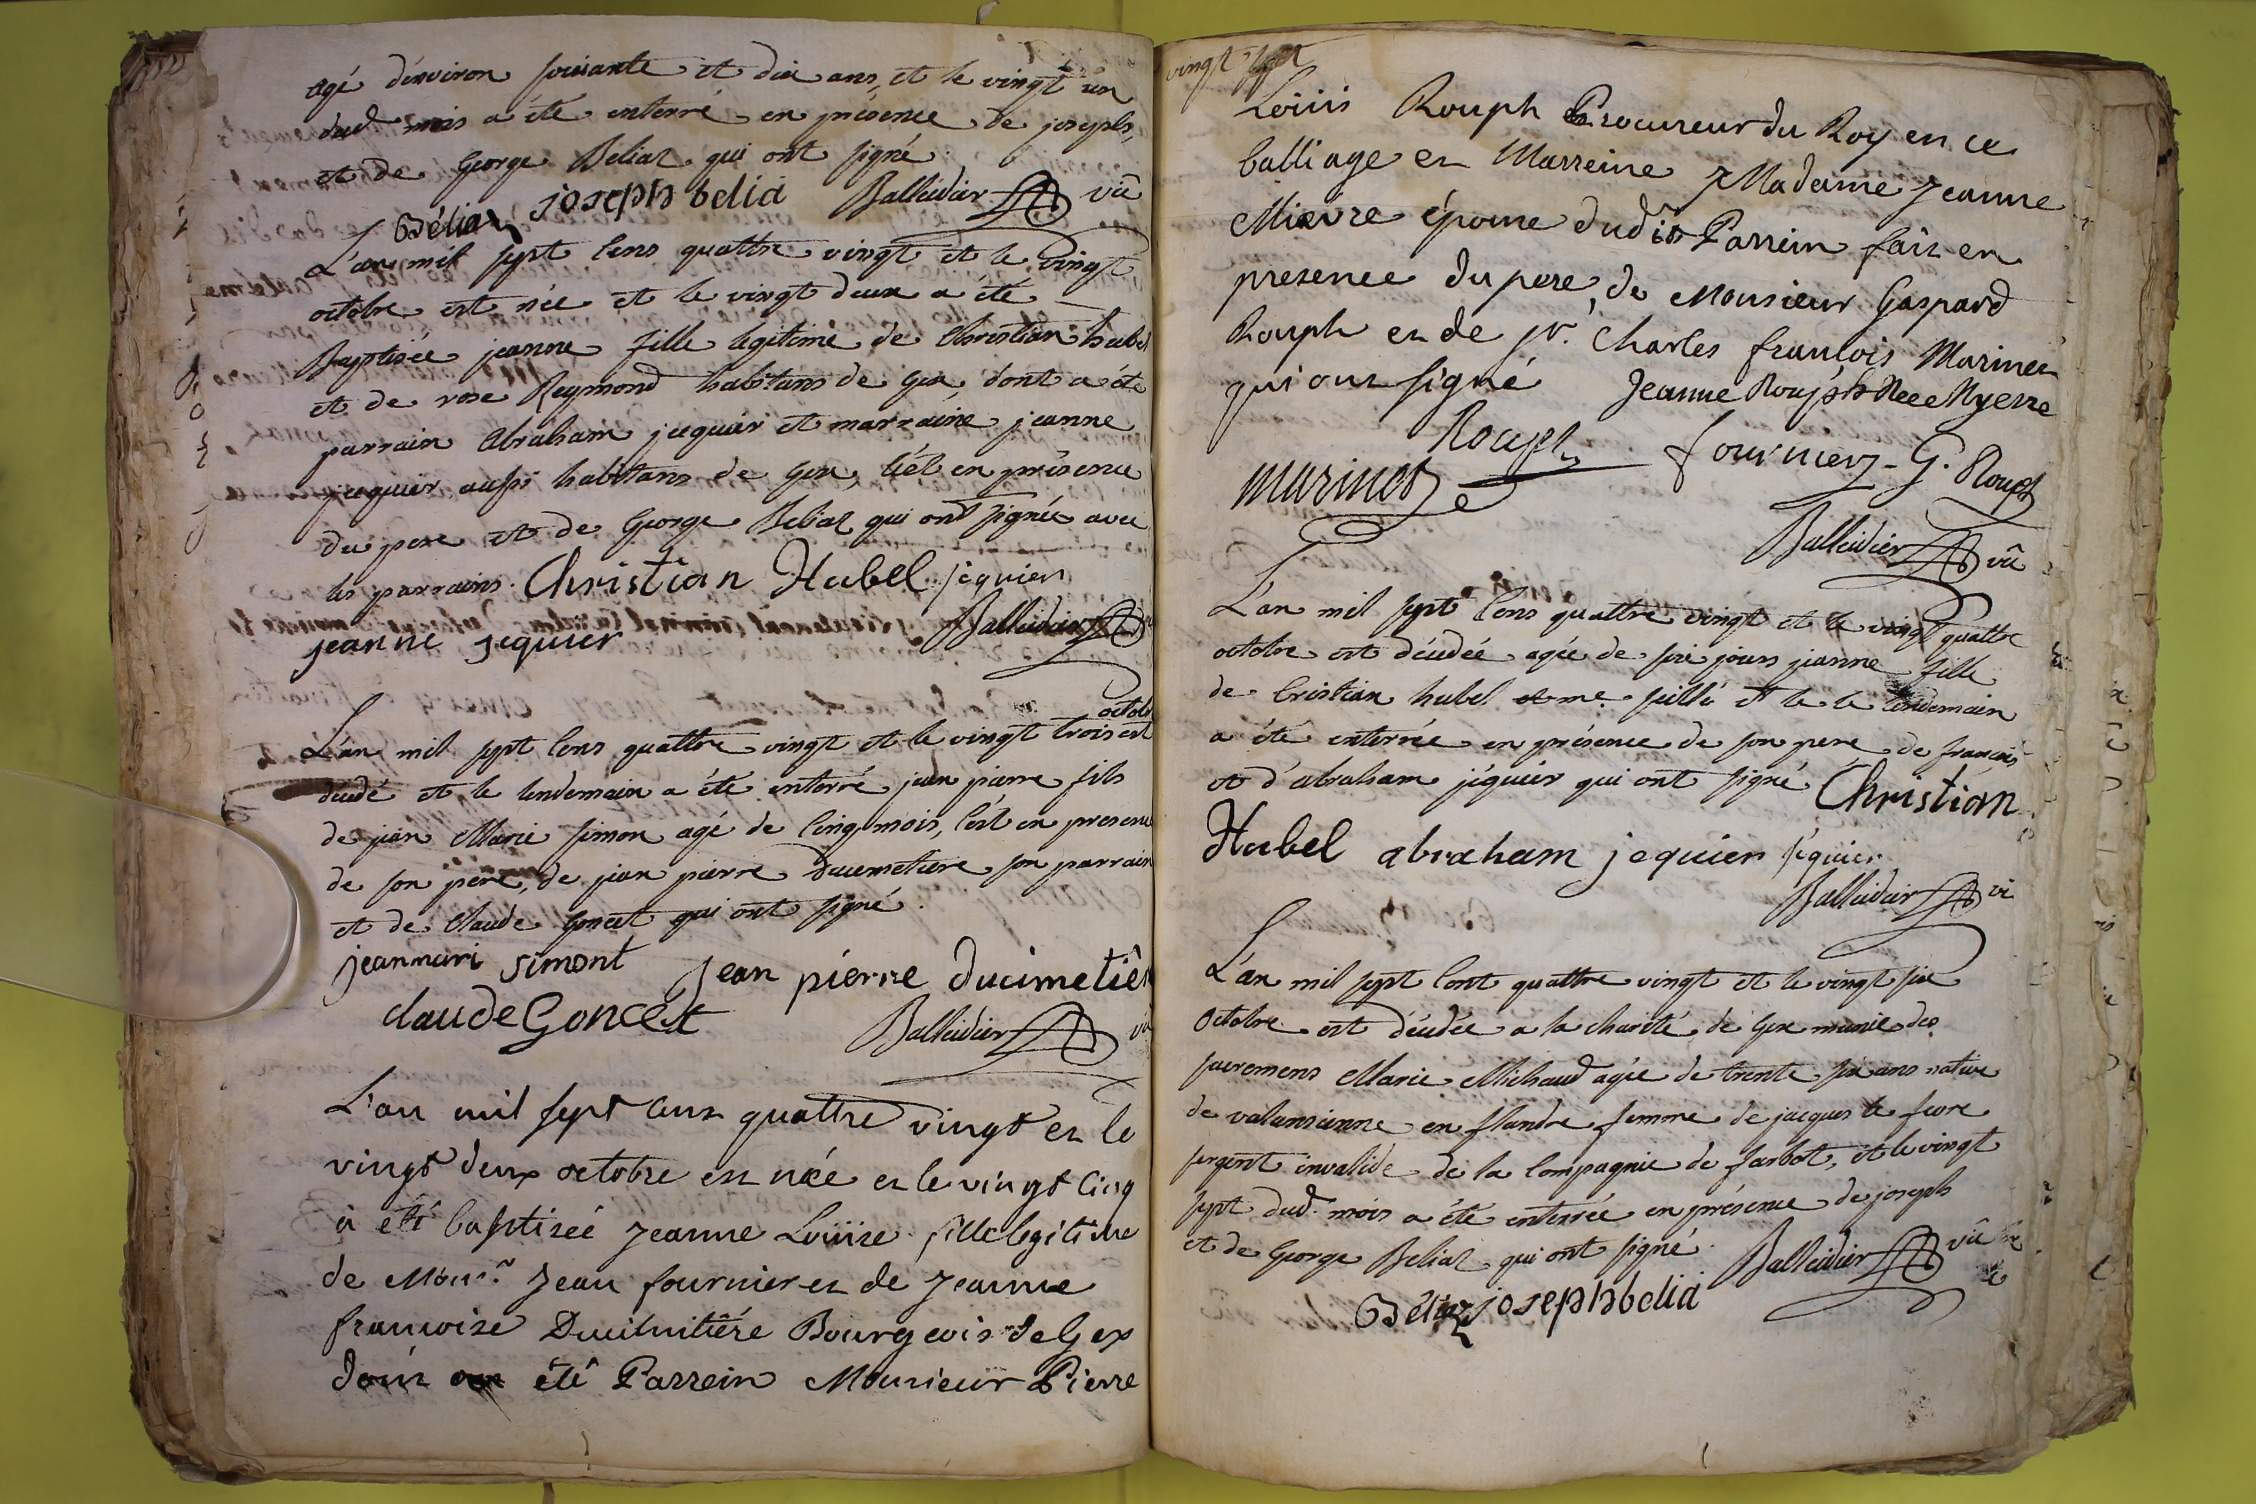 agé d'environ soixante et dix ans, et le vingt un
dud mois a été enterré en présence de joseph,
et de George Beliaz qui ont signé.
Béliaz joseph belia Balleidier vic
L'an mil sept cens quattre vingt et le vingt
octobre est née et le vingt deux a été
Baptisée jeanne fille legitime de Christian hubel
et de rose Reymond habitans de Gex, dont a été
parrain Abraham jequier et marraine jeanne
jequier aussi habitans de Gex, c'ést en présence
du pere et de George Beliaz qui ont signé avec
les parrains. Christian Hubel jéquier
jeanne jequier Balleidier
octobre
L'an mil sept cens quattre vingt et le vingt trois est
décédé et le lendemain a été enterré jean pierre fils
de jean Marie simon agé de cinq mois, c'ést en presence
de son père, de jean pierre Ducimetiere son parrain
et de Claude Goncet qui ont signé.
jeanmari simont jean pierre ducimetiêr
claude Goncet Balleidier vic
L'an mil sept cens quattre vingt et le
vingt deux octobre est née et le vingt cinq
à eté baptizée Jeanne Louïse fille legitime
de Mons.r Jean fournier et de Jeanne
francoise Ducimitière Bourgeois de Gex
dont été Parrein Monsieur Pierre
vingt sept
Loüis Rouph Procureur du Roy en ce
balliage et Marreine Madame Jeanne
Mievre épouse dudit Parrein fait en
presence du pere, de Monsieur Gaspard
Rouph et de sr. Charles françois Marinet
qui ont signé Jeanne Rouph Nee Myevre
Rouph fournier G. Rouph
marinet
Balleidier vic
L'an mil sept cens quattre vingt et le vingt quattre
octobre est décédée agée de six jours jeanne fille
de Cristian hubel et le le lendemain
a été enterrée en présence de son pere de francois
et d'abraham jéquier qui ont signé Christian
Hubel abraham jequier jéquier
Balleidier vic
L'an mil sept cent quattre vingt et le vingt six
Octobre est décédée a la charité de Gex munie des
sacremens Marie Michaud agée de trente six ans native
de valansienne en flandre femme de jacques le fevre
sergent invalide de la Compagnie de Jarbot, et le vingt
sept dud. mois a été enterrée en présence de joseph
et de George Beliaz qui ont signé. Balleidier vic
Béliaz joseph belia